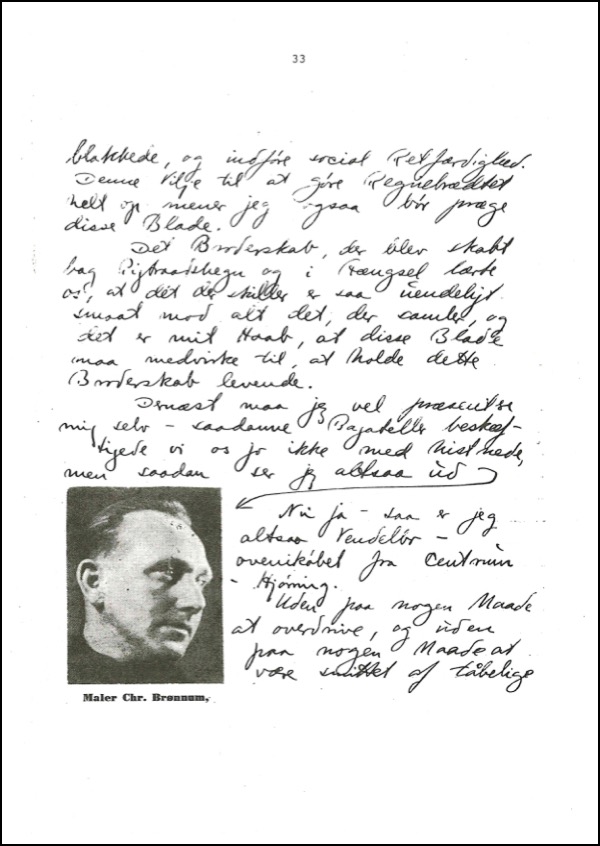 33
blakkede, og indføre social Retfærdighed.
Denne Vilje til at göre Regnebrædtet
helt op mener jeg ogsaa bör præge
disse Blade.
Det Broderskab, der blev skabt
bag Pigtraadshegn og i Fængsel lærte
os, at det der skiller er saa uendeligt
smaat mod alt det, der samler, og
det er mit Haab, at disse Blade
maa medvirke til, at holde dette
Broderskab levende.
Dernæst maa jeg vel præsentere
mig selv – saadanne Bagateller beskæf-
tigede vi os jo ikke med hist nede,
men saadan ser jeg altsaa ud
Nu ja – saa er jeg
altsaa Vendelbo –
ovenikøbet fra Centrum
– Hjørring.
Uden paa nogen Maade
at overdrive, og uden
paa nogen Maade at
være smittet af tåbelige
Maler Chr. Brønnum,